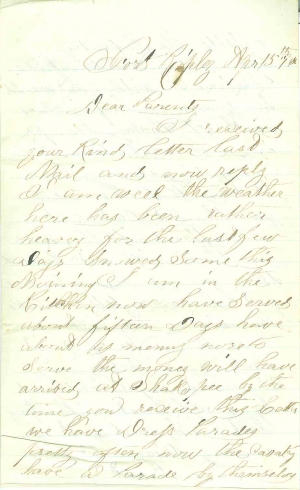 Fort Ripley Apr 15th
Dear Parents
I received
your Kind letter last
Mail and now reply
I am well the weather
here has been rather
heavey for the last few
days Snowed Some this
Morning I am in the
Kitchen now have Served
about fifteen Days have
about as meny more to
Serve the money will have
arrived at Shakopee by the
time you receive this letter
we have Dress Parades
pretty often now the Cavalry
have a Parade by themselves